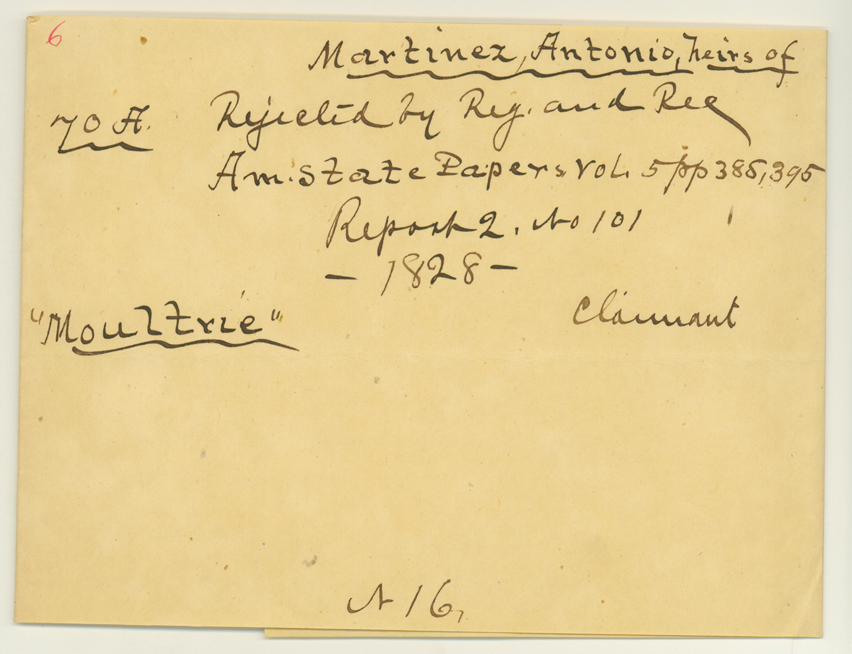 6
Martinez, Antonio, heirs of
70 A. Rejected by Reg. and Rec
Am. State Papers Vol. 5 pp 385, 395
Report 2. No 101
- 1828 -
"Moultrie" Claimant
N 16,